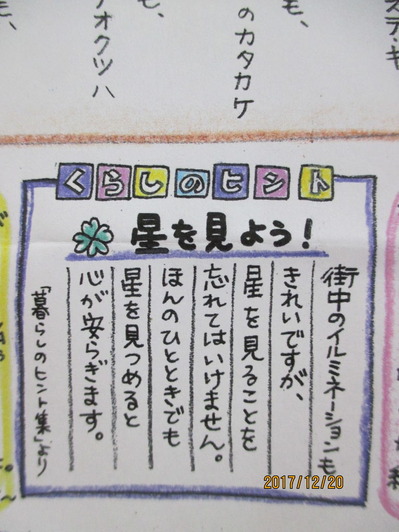 も、
のカタカケ
も、
オクツハ
も、
くらしのヒント
星を見よう!
街中のイルミネーションも
きれいですが、
星を見ることを
忘れてはいけません。
ほんのひとときでも
星を見つめると
心が安らぎます。
「暮らしのヒント集」より
2017/12/20